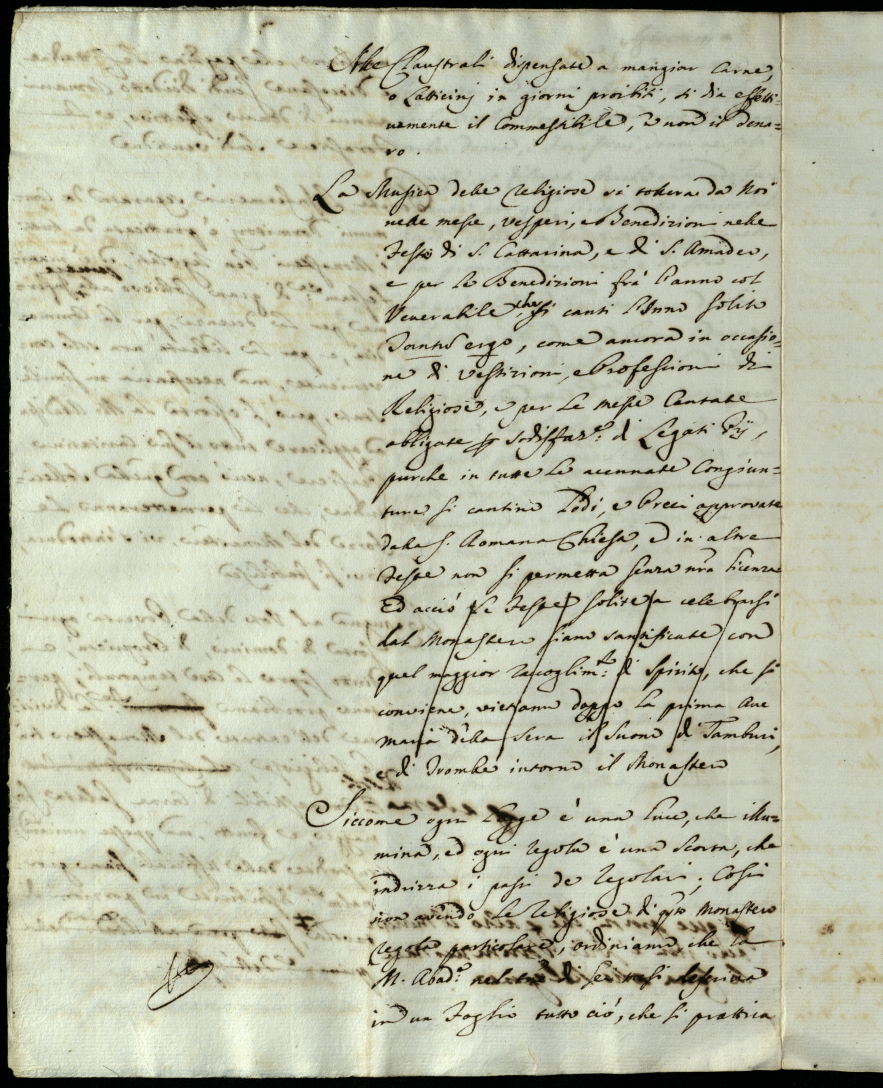 Alle Claustrali dispensate a mangiar carne,
o latticinj in giorni proibiti, si dia effetti=
vamente il Commestibile, e non il dena=
ro.
La Musica delle Religiose si tolera da Noi
nelle messe, vesperi, e Benedizioni nelle
Feste di S. Cattarina, e di S. Amadeo,
e per le Benedizioni frà l'anno col
Venerabile, che si canti l'Inno solito
Tantū ergo, come ancora in occasio=
ne di vestizioni, e Professioni di
Religiose, e per le messe Cantate
obligate p sodisfaz.e di Legati Pij,
purche in tutte le accennate Congiun=
ture si cantino Lodi, e Preci approvate
dalla S. Romana Chiesa, ed in altre
Feste non si permetta senza nr̃a licenza
Ed acciò le Feste solite a celebrarsi
dal Monastero siano santificate con
quel maggior raccoglim.to di spirito, che si
conviene, vietiamo doppo la prima Ave
Maria della sera il suono di Tamburi,
di Trombe intorno il Monastero
Siccome ogni legge è una luce, che illu=
mina, ed ogni regola è una scorta, che
indrizza i passi de regolari; Così
non avendo le religiose di qsto Monastero
regola particolare, ordiniamo che la
M. Abad.a nel di sei mesi descriva
in un Foglio tutto ciò, che si prattica